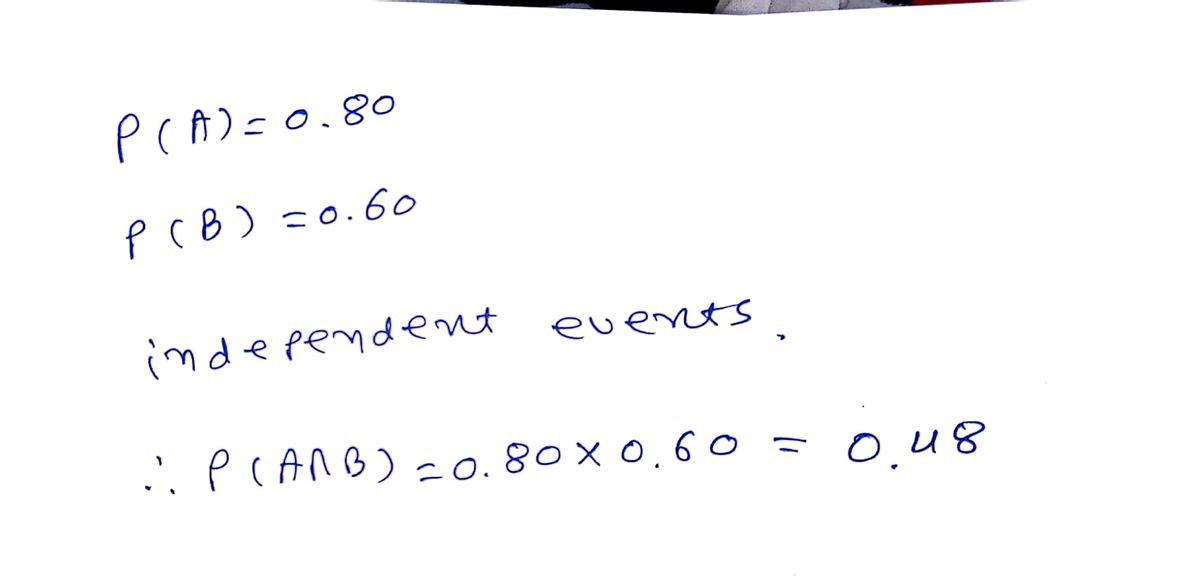 P(A) = 0.80
P(B) = 0.60
independent events.
∴ P(A∩B) = 0.80 × 0.60 = 0.48